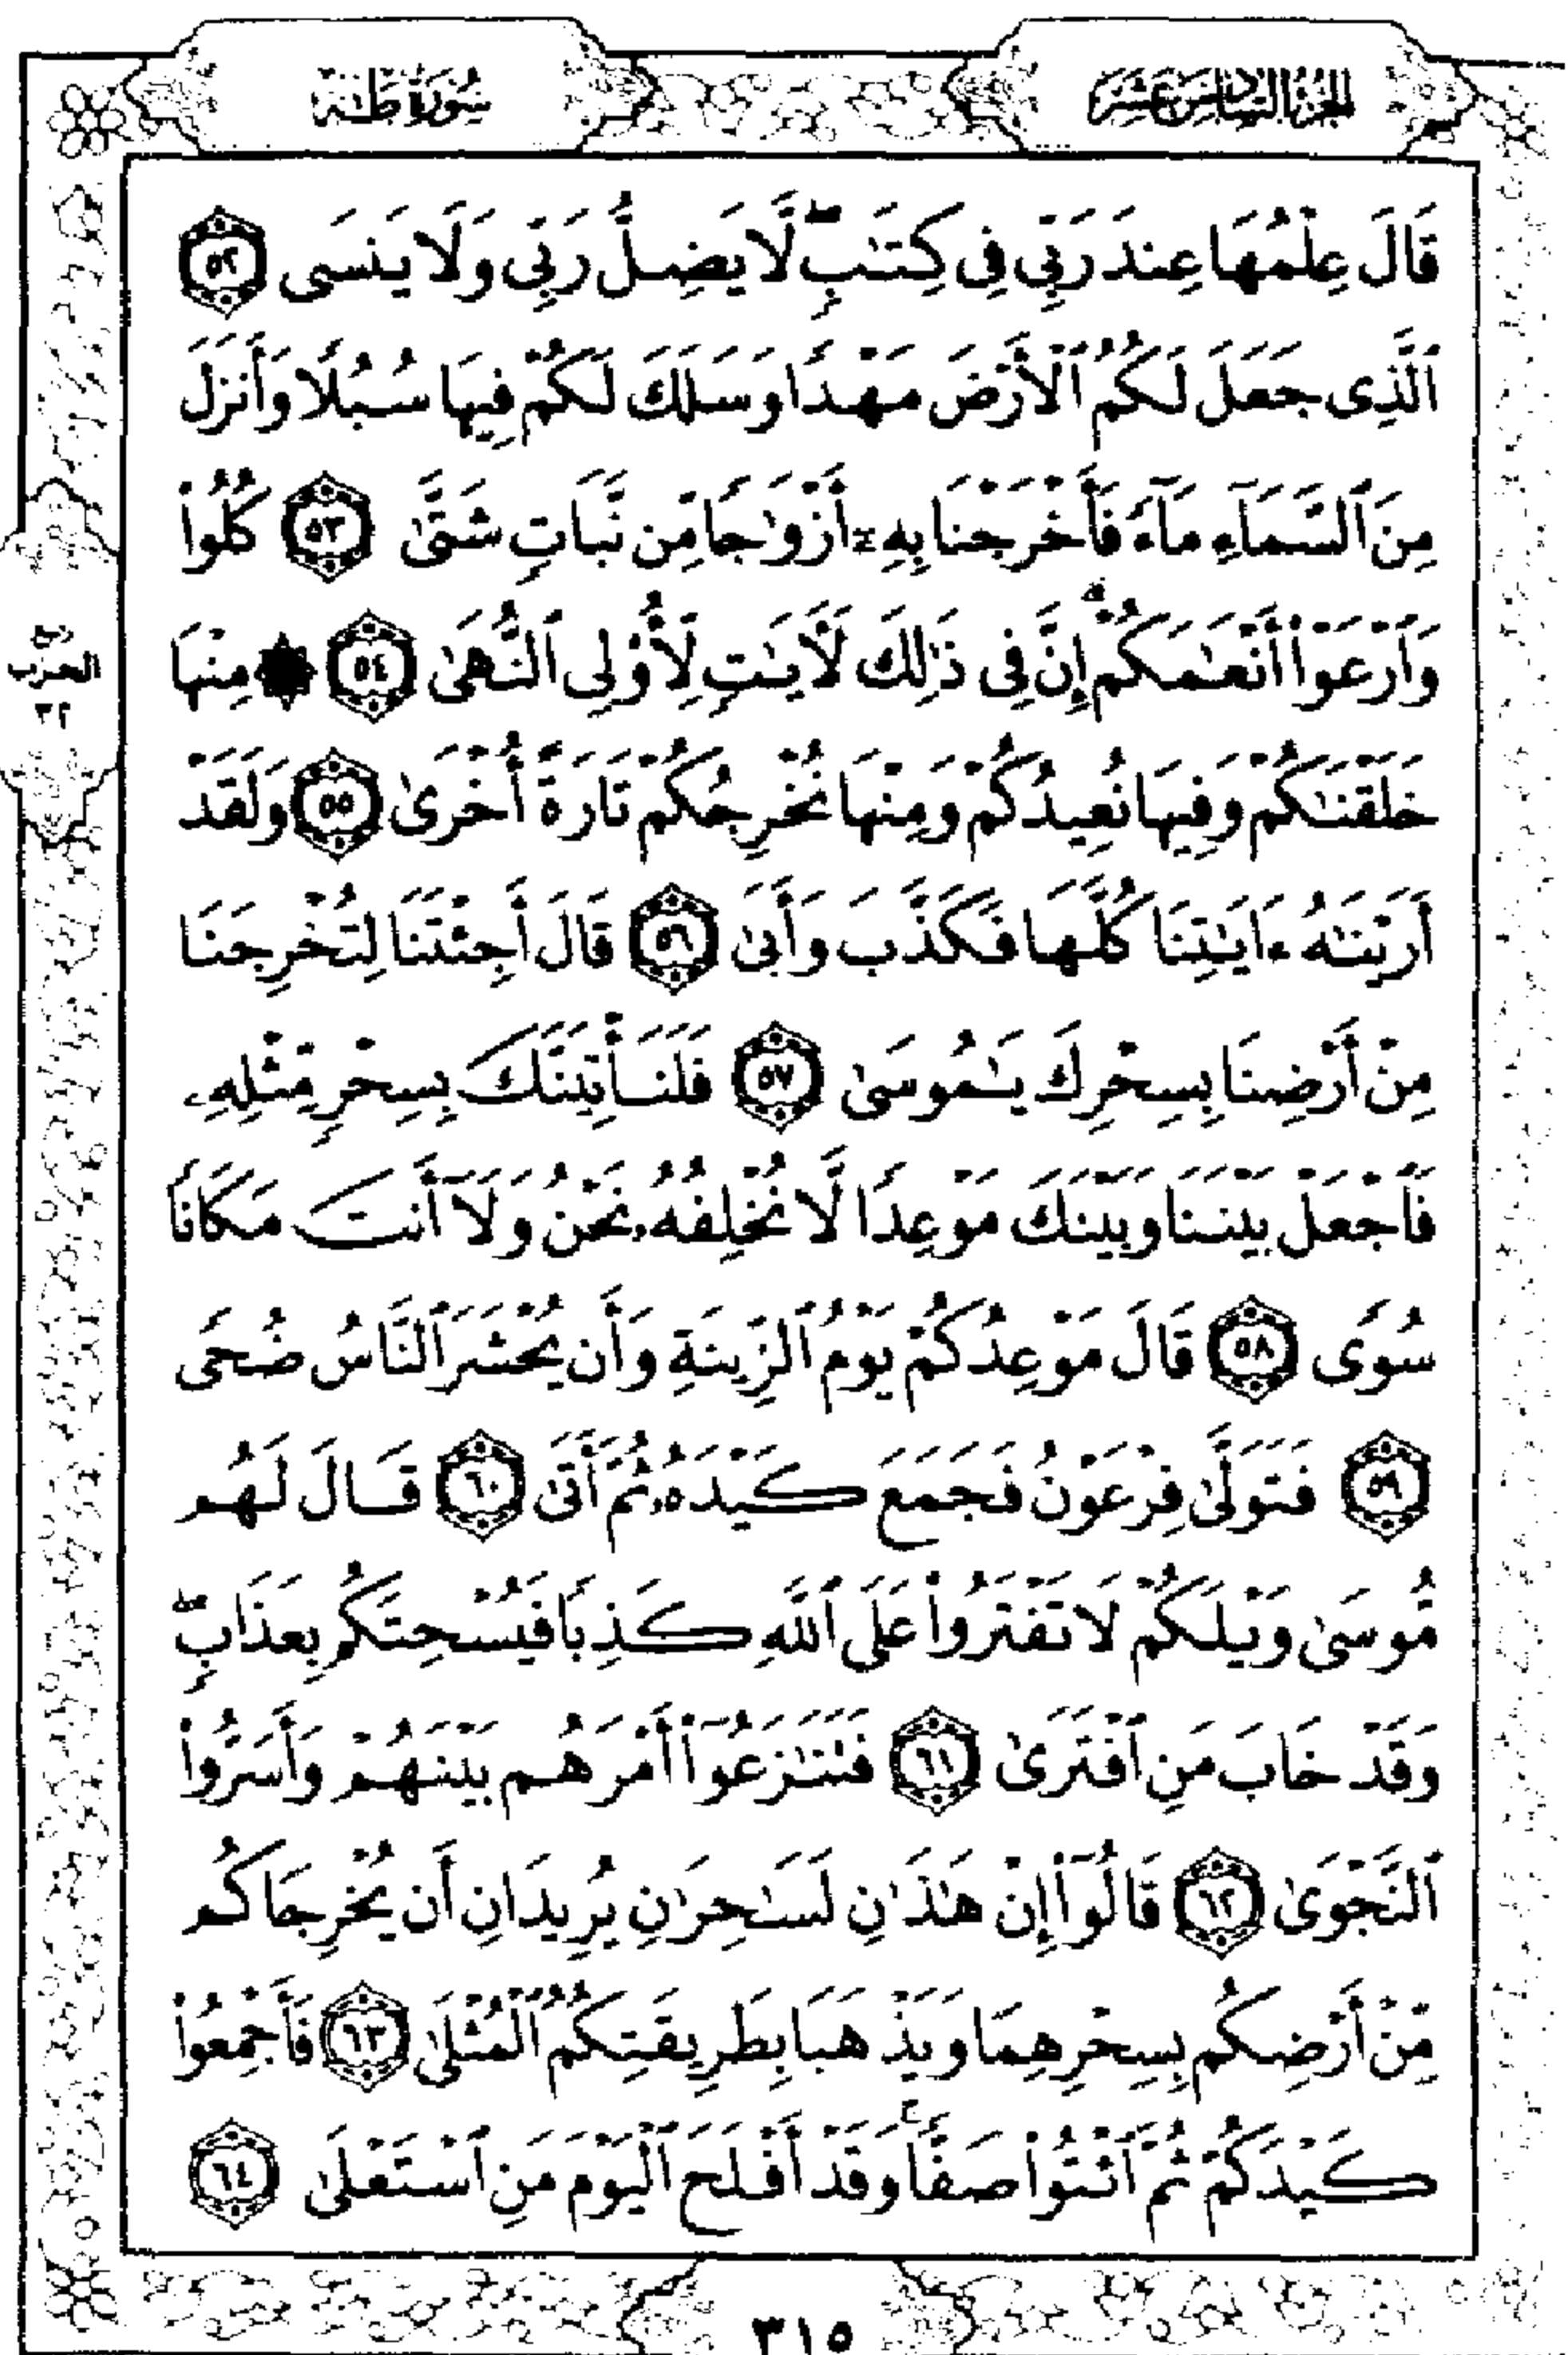 الجزء السادس عشر
سورة طه
قَالَ عِلْمُهَا عِندَ رَبِّى فِى كِتَـٰبٍ ۖ لَّا يَضِلُّ رَبِّى وَلَا يَنسَى ٥٢
ٱلَّذِى جَعَلَ لَكُمُ ٱلْأَرْضَ مَهْدًا وَسَلَكَ لَكُمْ فِيهَا سُبُلًا وَأَنزَلَ
مِنَ ٱلسَّمَآءِ مَآءً فَأَخْرَجْنَا بِهِۦٓ أَزْوَٰجًا مِّن نَّبَاتٍ شَتَّىٰ ٥٣ كُلُوا۟
وَٱرْعَوْا۟ أَنْعَـٰمَكُمْ ۗ إِنَّ فِى ذَٰلِكَ لَـَٔايَـٰتٍ لِّأُو۟لِى ٱلنُّهَىٰ ٥٤ ۞ مِنْهَا
خَلَقْنَـٰكُمْ وَفِيهَا نُعِيدُكُمْ وَمِنْهَا نُخْرِجُكُمْ تَارَةً أُخْرَىٰ ٥٥ وَلَقَدْ
أَرَيْنَـٰهُ ءَايَـٰتِنَا كُلَّهَا فَكَذَّبَ وَأَبَىٰ ٥٦ قَالَ أَجِئْتَنَا لِتُخْرِجَنَا
مِنْ أَرْضِنَا بِسِحْرِكَ يَـٰمُوسَىٰ ٥٧ فَلَنَأْتِيَنَّكَ بِسِحْرٍ مِّثْلِهِۦ
فَٱجْعَلْ بَيْنَنَا وَبَيْنَكَ مَوْعِدًا لَّا نُخْلِفُهُۥ نَحْنُ وَلَآ أَنتَ مَكَانًا
سُوًى ٥٨ قَالَ مَوْعِدُكُمْ يَوْمُ ٱلزِّينَةِ وَأَن يُحْشَرَ ٱلنَّاسُ ضُحًى
٥٩ فَتَوَلَّىٰ فِرْعَوْنُ فَجَمَعَ كَيْدَهُۥ ثُمَّ أَتَىٰ ٦٠ قَالَ لَهُم
مُّوسَىٰ وَيْلَكُمْ لَا تَفْتَرُوا۟ عَلَى ٱللَّهِ كَذِبًا فَيُسْحِتَكُم بِعَذَابٍ ۖ
وَقَدْ خَابَ مَنِ ٱفْتَرَىٰ ٦١ فَتَنَـٰزَعُوٓا۟ أَمْرَهُم بَيْنَهُمْ وَأَسَرُّوا۟
ٱلنَّجْوَىٰ ٦٢ قَالُوٓا۟ إِنْ هَـٰذَٰنِ لَسَـٰحِرَٰنِ يُرِيدَانِ أَن يُخْرِجَاكُم
مِّنْ أَرْضِكُم بِسِحْرِهِمَا وَيَذْهَبَا بِطَرِيقَتِكُمُ ٱلْمُثْلَىٰ ٦٣ فَأَجْمِعُوا۟
كَيْدَكُمْ ثُمَّ ٱئْتُوا۟ صَفًّا ۚ وَقَدْ أَفْلَحَ ٱلْيَوْمَ مَنِ ٱسْتَعْلَىٰ ٦٤
الحزب
٣٢
٣١٥